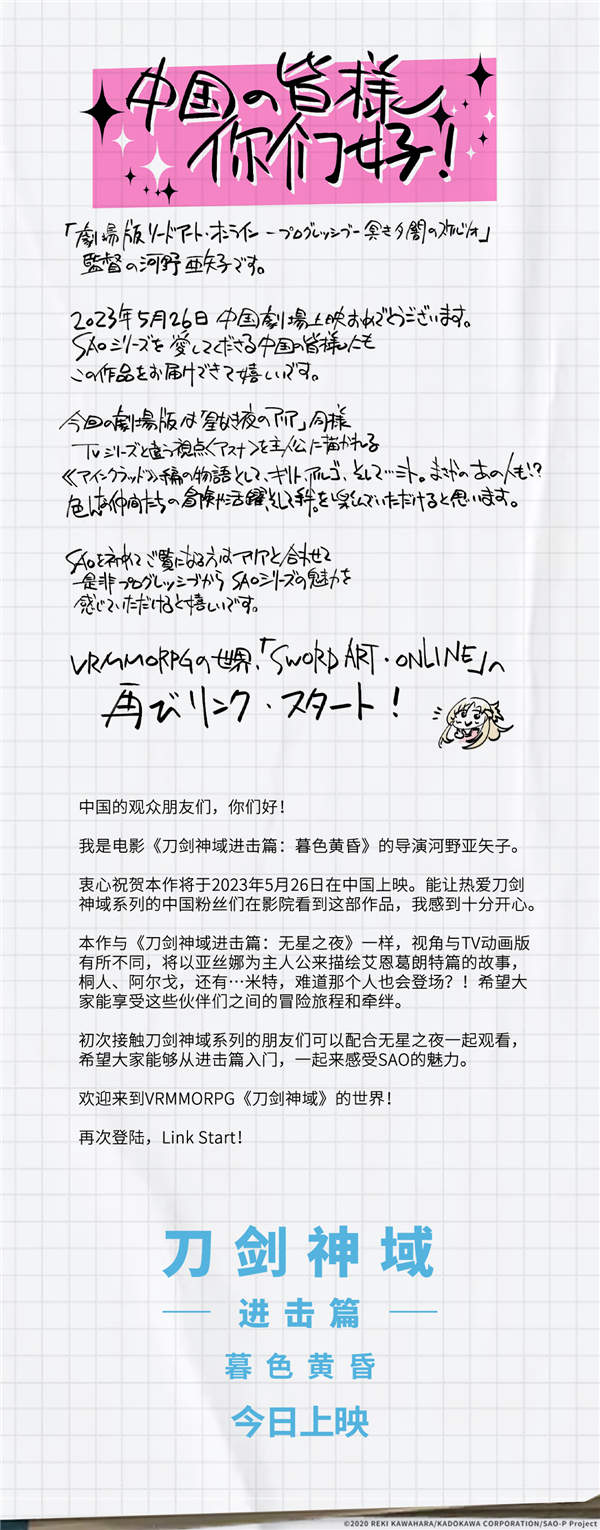 中国の皆様
你们好！
「劇場版ソードアート・オンライン-プログレッシブ-冥き夕闇のスケルツォ」
監督の河野亜矢子です。
2023年5月26日 中国劇場上映おめでとうございます。
SAOシリーズを愛してくださる中国の皆様にも
この作品をお届けできて嬉しいです。
今回の劇場版は「星なき夜のアリア」同様
TVシリーズと違う視点〈アスナ〉を主人公に描かれる
《アインクラッド》編の物語として、キリト、アルゴ、そして…ミト。まさかのあの人も!?
色んな仲間たちの冒険や活躍、そして絆を楽しんでいただけると思います。
SAOを初めてご覧になる方はアリアと合わせて
是非プログレッシブからSAOシリーズの魅力を
感じていただけると嬉しいです。
VRMMORPGの世界、「SWORD ART・ONLINE」へ
再びリンク・スタート！
中国的观众朋友们，你们好！
我是电影《刀剑神域进击篇：暮色黄昏》的导演河野亚矢子。
衷心祝贺本作将于2023年5月26日在中国上映。能让热爱刀剑
神域系列的中国粉丝们在影院看到这部作品，我感到十分开心。
本作与《刀剑神域进击篇：无星之夜》一样，视角与TV动画版
有所不同，将以亚丝娜为主人公来描绘艾恩葛朗特篇的故事，
桐人、阿尔戈，还有…米特，难道那个人也会登场？！希望大
家能享受这些伙伴们之间的冒险旅程和牵绊。
初次接触刀剑神域系列的朋友们可以配合无星之夜一起观看，
希望大家能够从进击篇入门，一起来感受SAO的魅力。
欢迎来到VRMMORPG《刀剑神域》的世界！
再次登陆，Link Start！
刀剑神域
进击篇
暮色黄昏
今日上映
©2020 REKI KAWAHARA/KADOKAWA CORPORATION/SAO-P Project